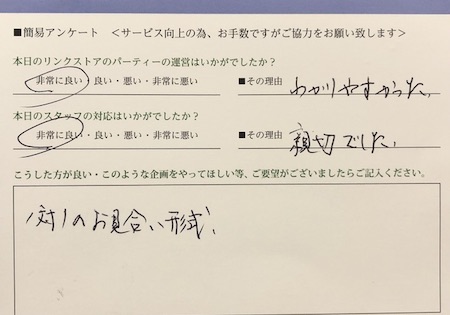 ■簡易アンケート ＜サービス向上の為、お手数ですがご協力をお願い致します＞
本日のリンクストアのパーティーの運営はいかがでしたか？
非常に良い・良い・悪い・非常に悪い ■その理由 わかりやすかった。
本日のスタッフの対応はいかがでしたか？
非常に良い・良い・悪い・非常に悪い ■その理由 親切でした。
こうした方が良い・このような企画をやってほしい等、ご要望がございましたらご記入ください。
1対1のお見合い形式。